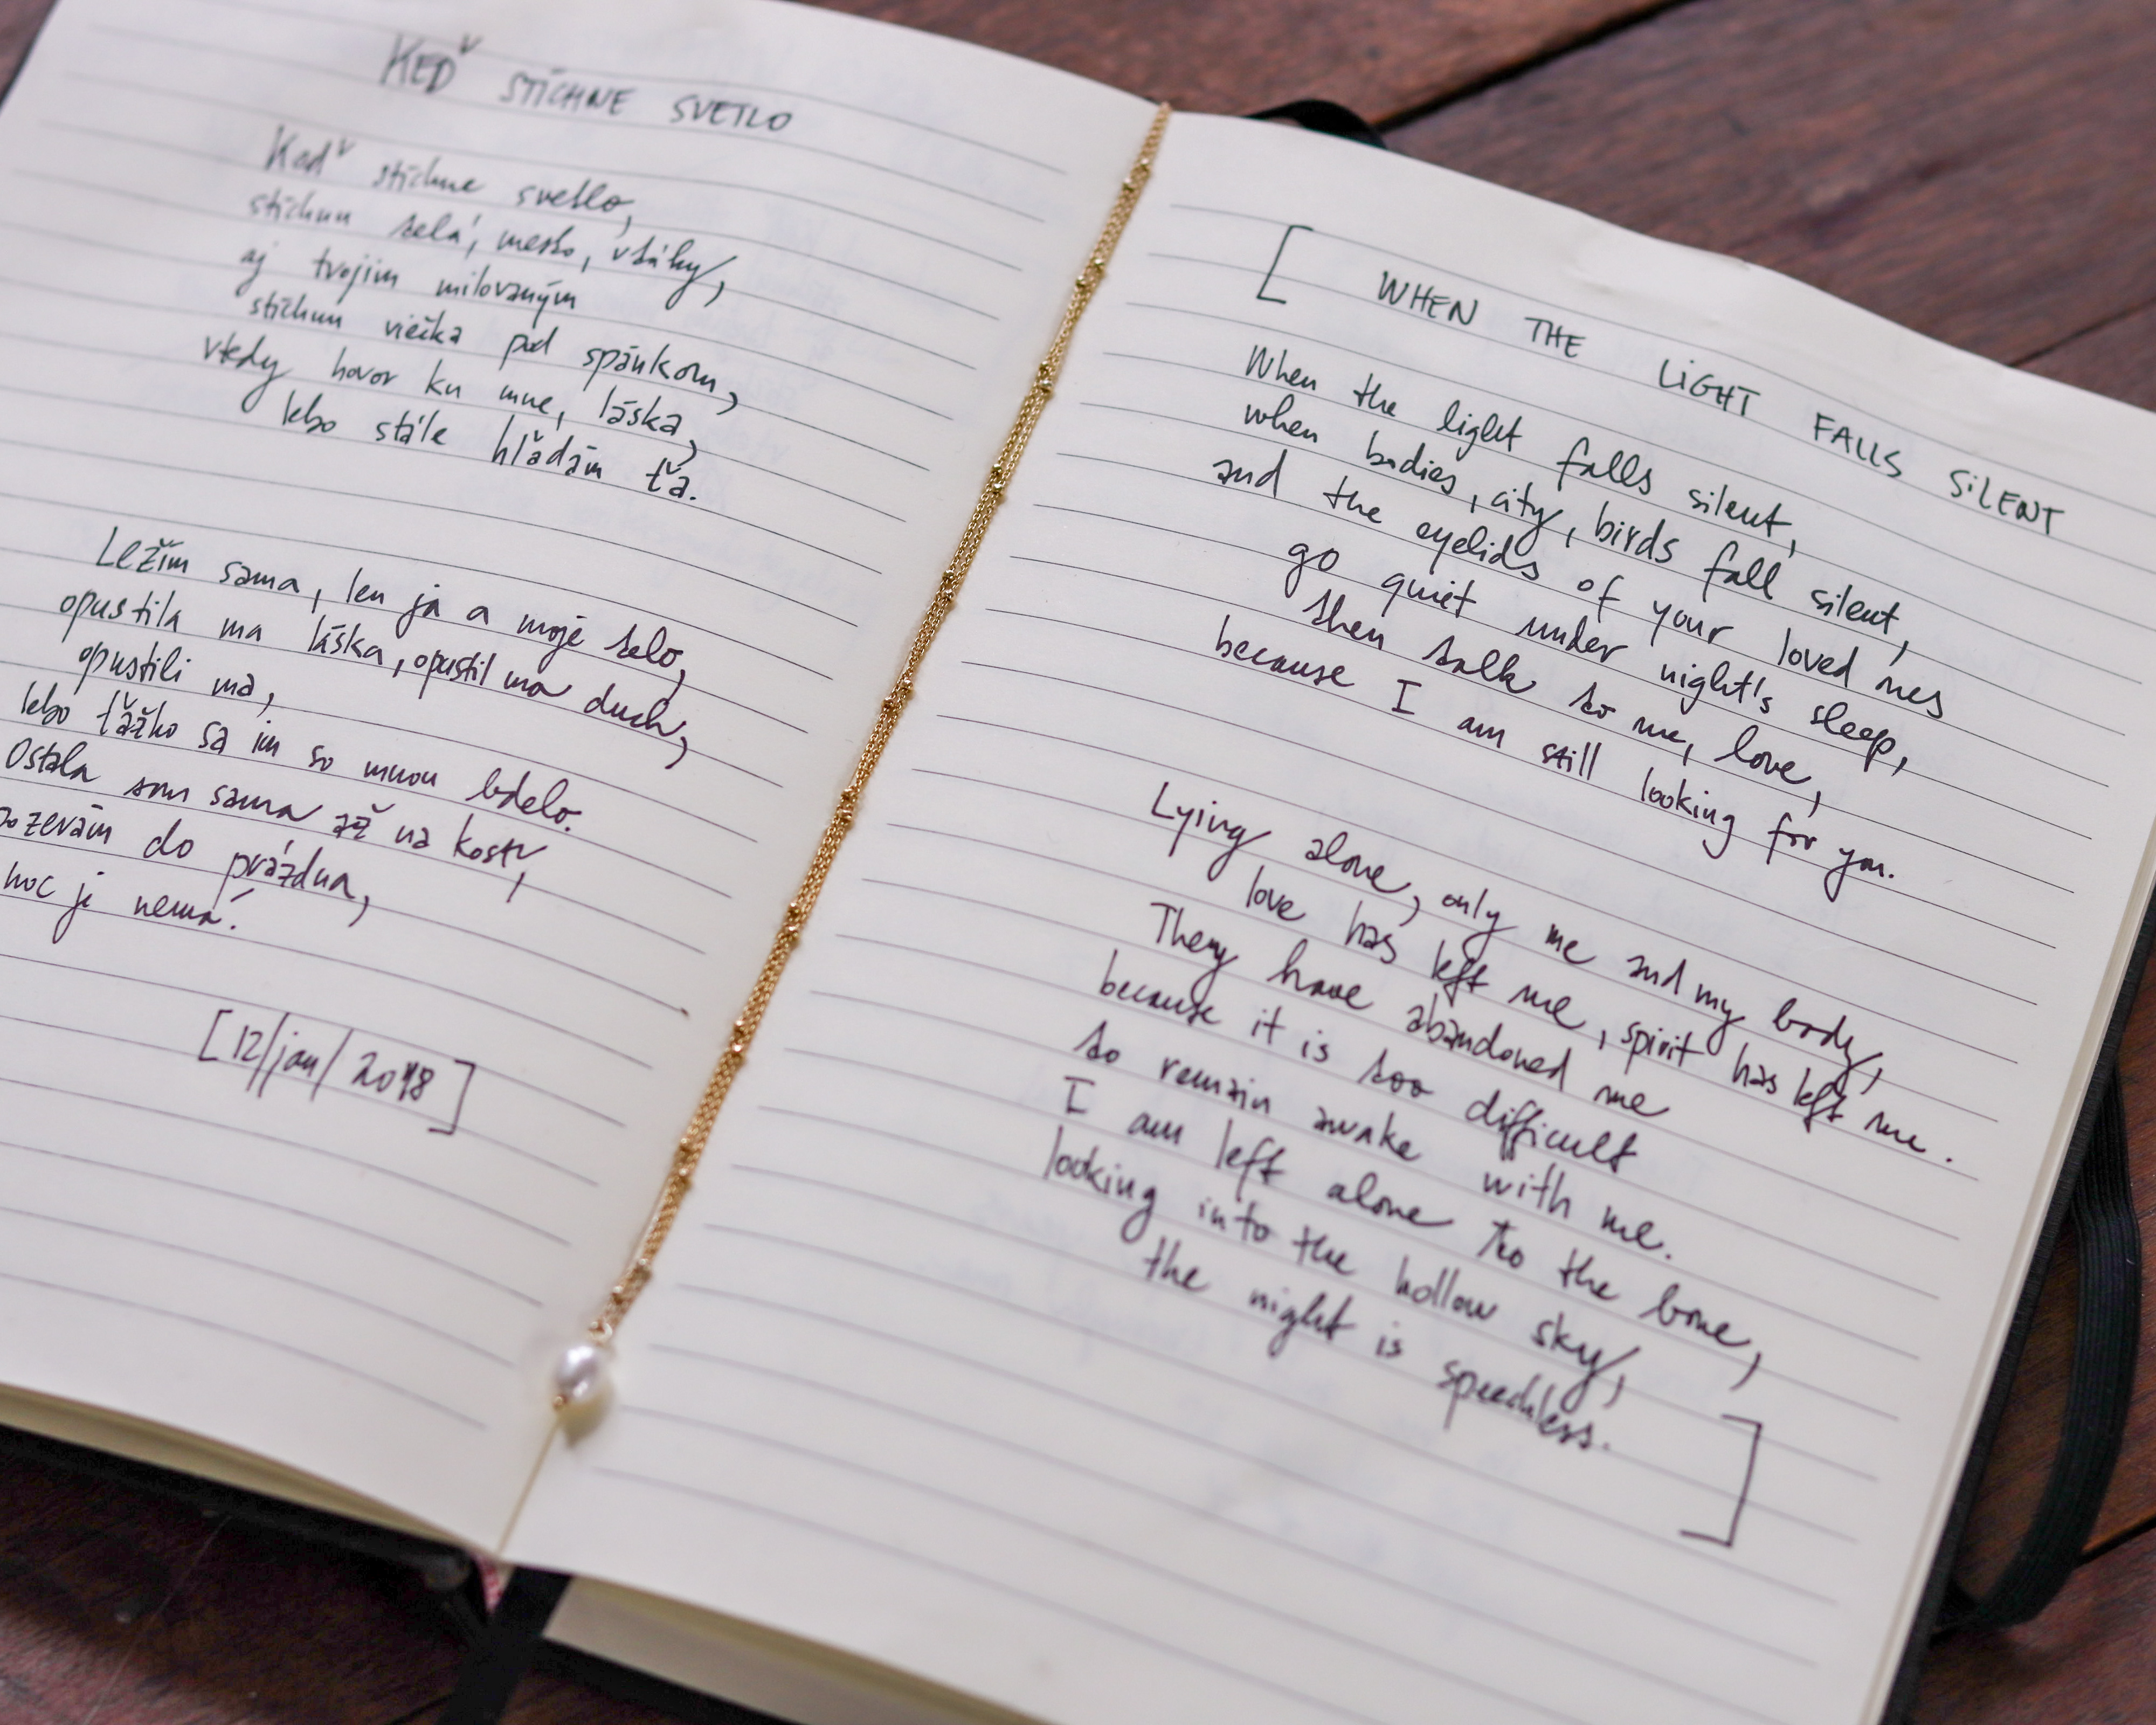 KEĎ STÍCHNE SVETLO
Keď stíchne svetlo,
stíchnu telá, mesto, vtáky,
aj tvojim milovaným
stíchnu viečka pod spánkom,
vtedy hovor ku mne, láska,
lebo stále hľadám ťa.
Ležím sama, len ja a moje telo,
opustila ma láska, opustil ma duch,
opustili ma,
lebo ťažko sa im so mnou bdelo.
Ostala som sama až na kosti,
pozerám do prázdna,
noc je nemá.
[12/jan/2018]
[ WHEN THE LIGHT FALLS SILENT
When the light falls silent,
when bodies, city, birds fall silent,
and the eyelids of your loved ones
go quiet under night's sleep,
then talk to me, love,
because I am still looking for you.
Lying alone, only me and my body,
love has left me, spirit has left me.
They have abandoned me
because it is too difficult
to remain awake with me.
I am left alone to the bone,
looking into the hollow sky,
the night is speechless.
]